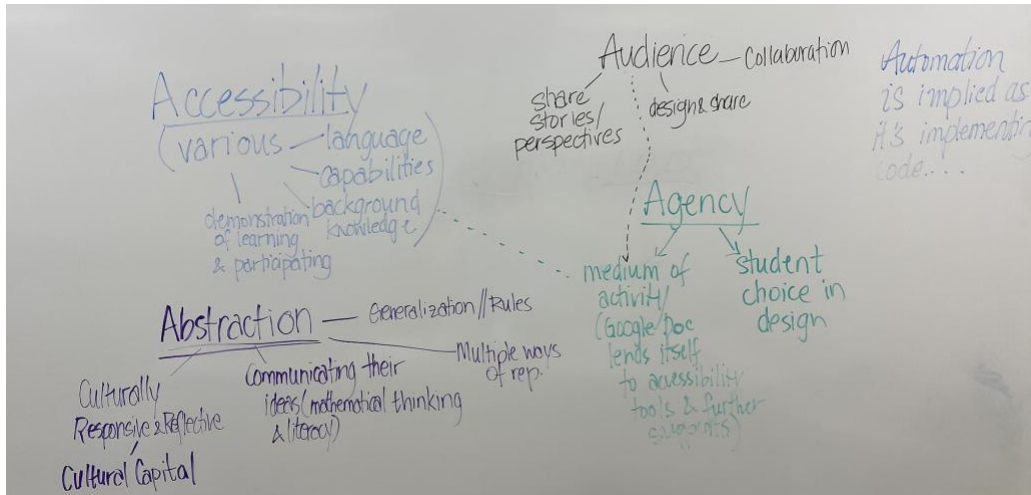 Accessibility
(various – language
– capabilities
background
knowledge)
demonstration
of learning
& participating
Audience – Collaboration
share
stories/
perspectives
design & share
Automation
is implied as
it's implementing
code....
Agency
medium of
activity
(Google/Doc
lends itself
to accessibility
tools & further
supports)
student
choice in
design
Abstraction – Generalization//Rules
Multiple ways
of rep.
Communicating their
ideas (mathematical thinking
& literacy)
Culturally
Responsive & Reflective
Cultural Capital